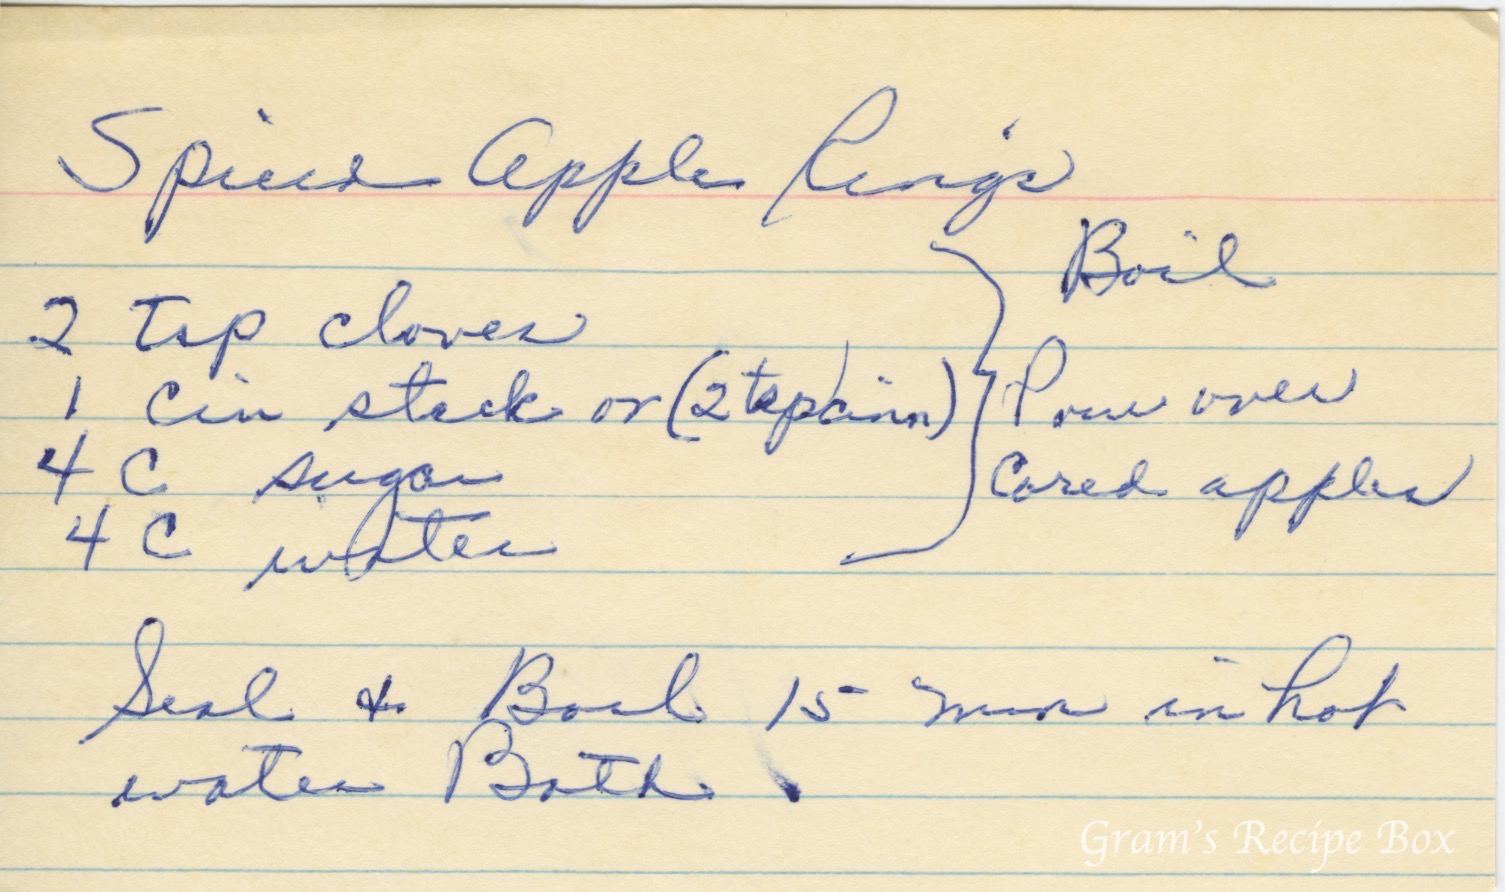 Spiced Apple Rings
2 tsp cloves
1 cin stick or (2 tsp cinn)
4 C sugar
4 C water
Boil
Pour over
Cored apples
Seal & Boil 15 min in hot
water Bath.
Gram's Recipe Box